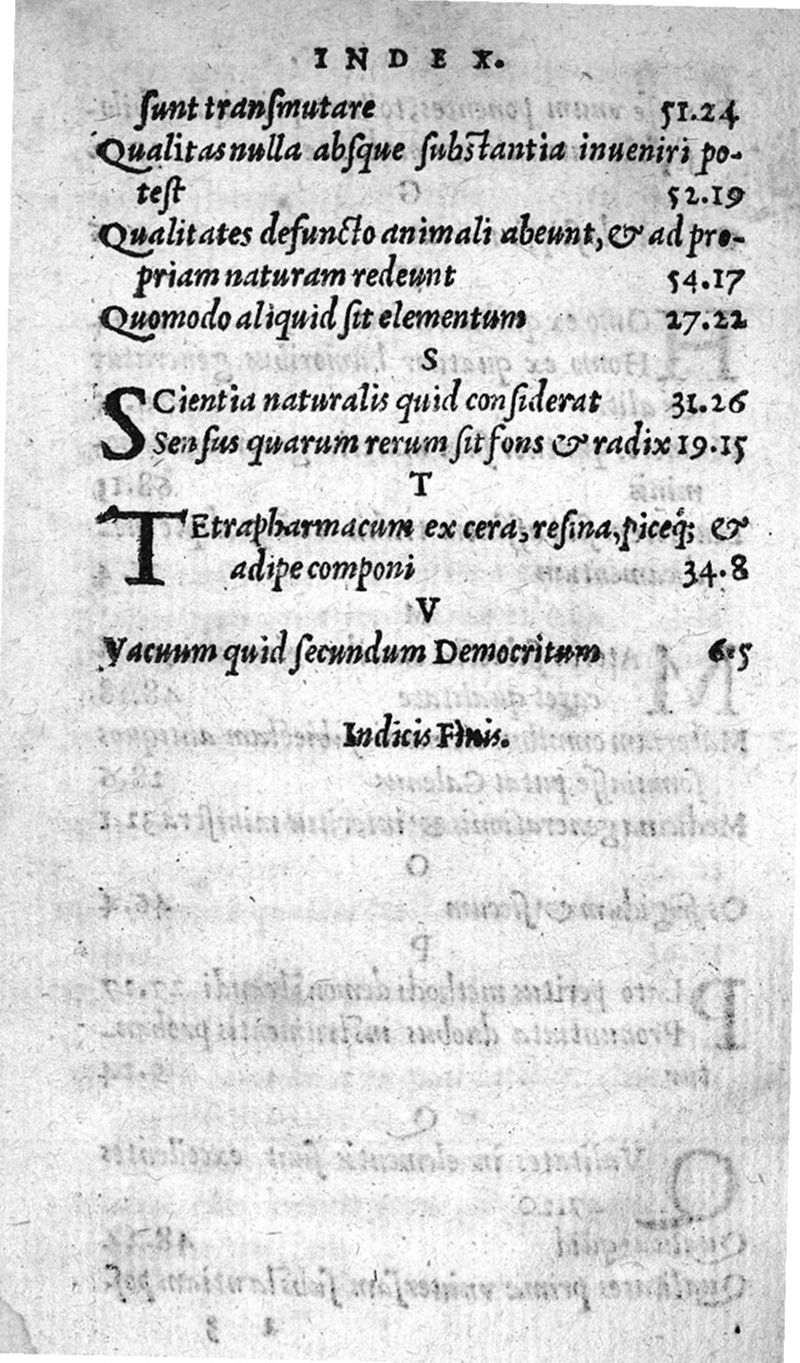 INDEX.
ſunt tranſmutare 51.24
Qualitas nulla abſque ſubſtantia inueniri po-
teſt 52.19
Qualitates defuncto animali abeunt, & ad pro-
priam naturam redeunt 54.17
Quomodo aliquid ſit elementum 27.22
S
SCientia naturalis quid conſiderat 31.26
Senſus quarum rerum ſit fons & radix 19.15
T
TEtrapharmacum ex cera, reſina, piceq; &
adipe componi 34.8
V
Vacuum quid ſecundum Democritum 6.5
Indicis Finis.